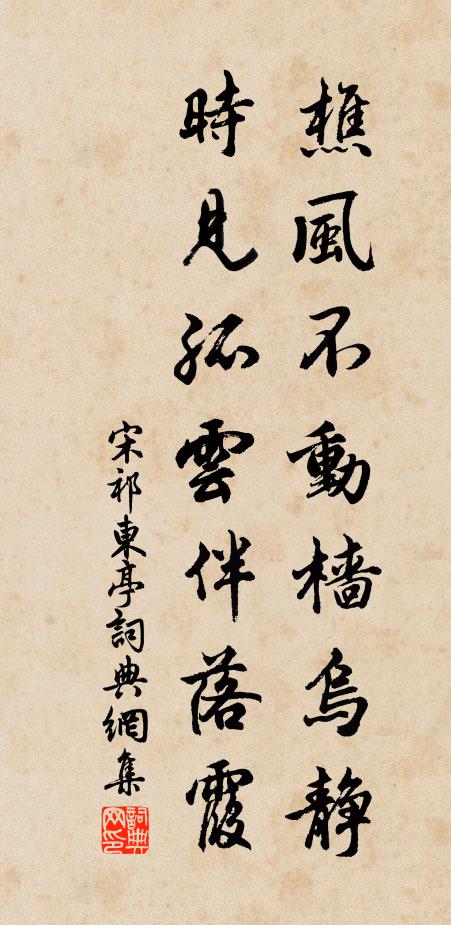 樵風不動檣烏静
時見孤雲伴落霞
宋祁東亭詞典網集
詞典网印